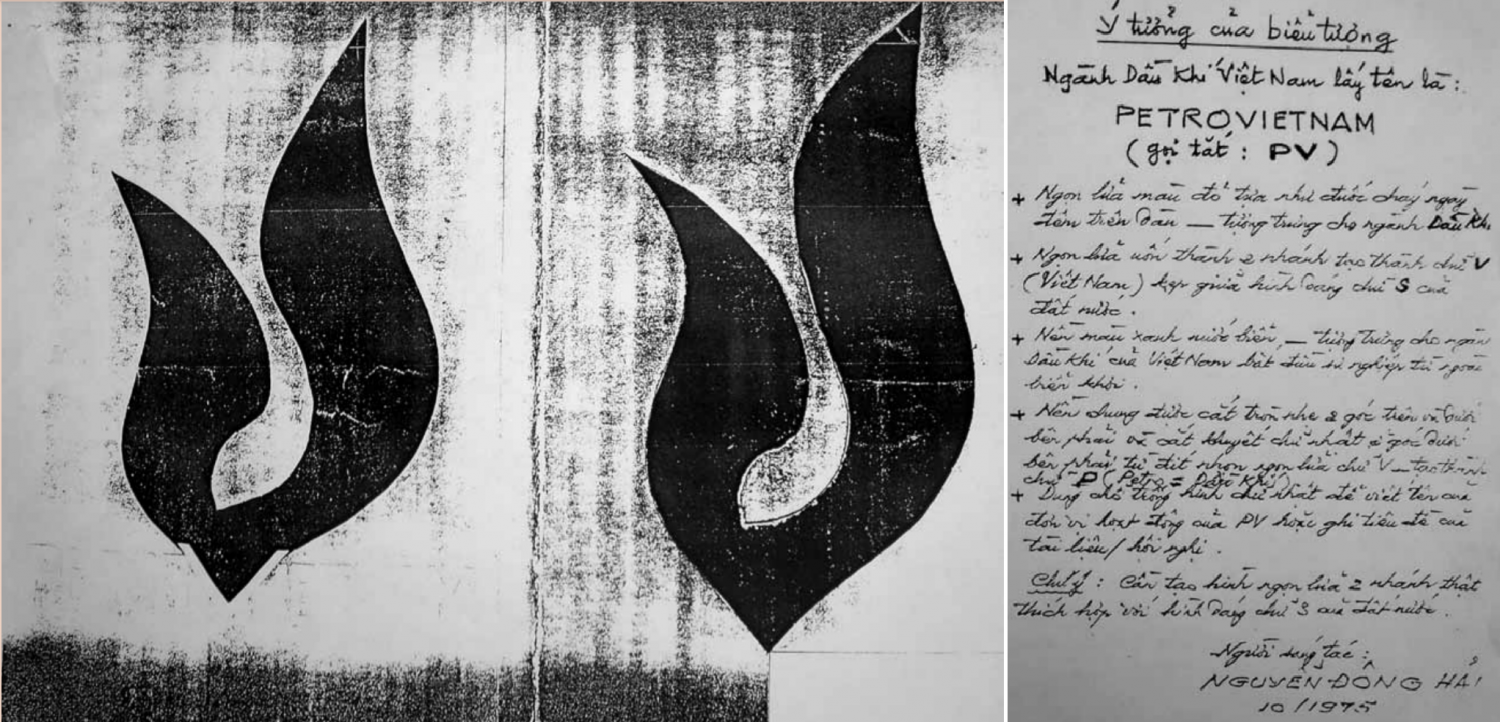 Ý tưởng của biểu tượng
Ngành Dầu Khí Việt Nam lấy tên là :
PETROVIETNAM
( gọi tắt : PV )
+ Ngọn lửa màu đỏ tựa như đuốc cháy ngày
đêm trên dàn — tượng trưng cho ngành Dầu Khí.
+ Ngọn lửa uốn thành 2 nhánh tạo thành chữ V
(Việt Nam) kẹp giữa hình dáng chữ S của
đất nước .
+ Nền màu xanh nước biển, — tượng trưng cho ngành
Dầu Khí của Việt Nam bắt đầu sự nghiệp từ ngoài
biển khơi .
+ Nền chung được cắt tròn nhẹ 2 góc trên và dưới
bên phải và cắt khuyết chữ nhật ở góc dưới
bên phải từ đít nhọn ngọn lửa chữ V — tạo thành
chữ P ( Petro = Dầu Khí )
+ Dùng chỗ trống hình chữ nhật để viết tên của
đơn vị hoạt động của PV hoặc ghi tiêu đề của
tài liệu / hội nghị .
Chú ý : Cần tạo hình ngọn lửa 2 nhánh thật
thích hợp với hình dáng chữ S của đất nước .
Người sáng tác :
NGUYỄN ĐÔNG HẢI
10 / 1975